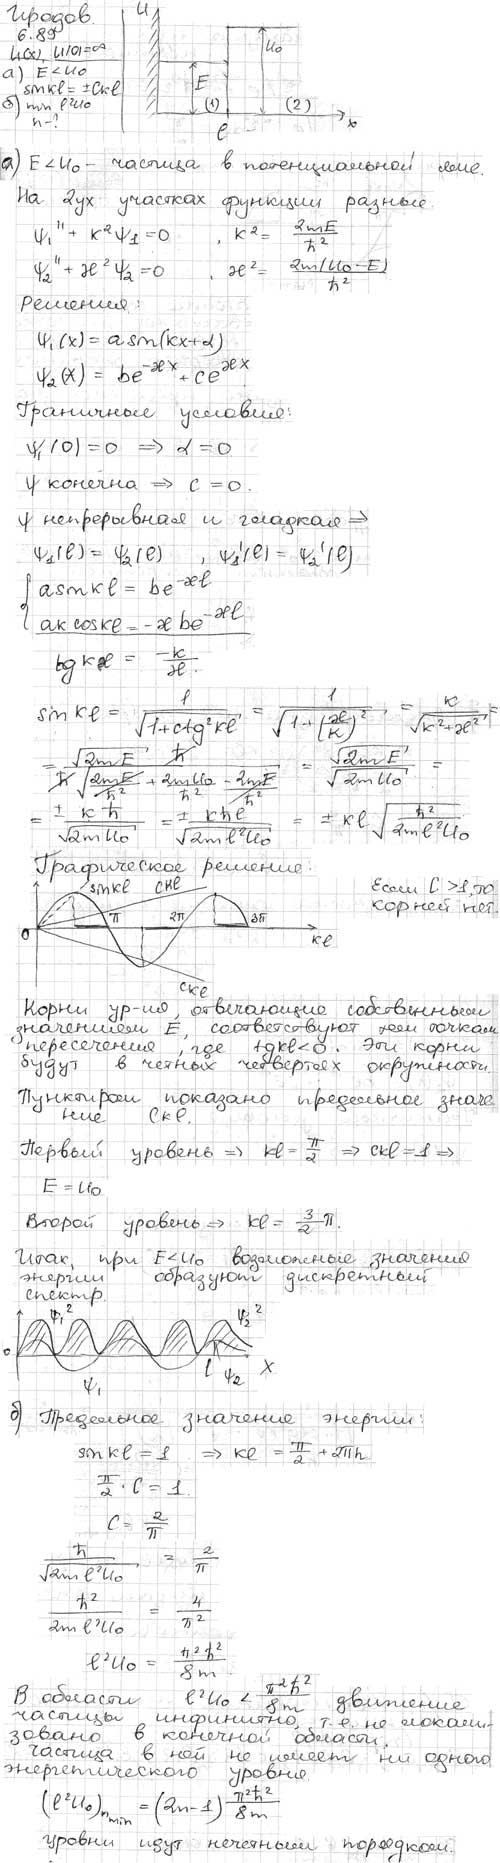 Иродов
6.89
U(x), U(0)=∞
а) E<U₀
sin kl = ± Ckl
б) min l²U₀
n-?
U
E
U₀
(1)
(2)
l
x
а) E<U₀ - частица в потенциальной яме.
На 2ух участках функции разные.
ψ₁'' + k²ψ₁=0 , k² = 2mE/ħ²
ψ₂'' + æ²ψ₂=0 , æ² = 2m(U₀-E)/ħ²
Решения:
ψ₁(x) = a sin(kx+α)
ψ₂(x) = be^{-æx} + ce^{æx}
Граничные условия:
ψ₁(0)=0 ⇒ α=0
ψ конечна ⇒ c=0.
ψ непрерывная и гладкая ⇒
ψ₁(l) = ψ₂(l) , ψ₁'(l) = ψ₂'(l)
a sin kl = be^{-æl}
ak cos kl = -æ be^{-æl}
tg kæ = -k/æ
sin kl = 1/√(1+ctg²kl) = 1/√(1+(æ/k)²) = k/√(k²+æ²) =
= √(2mE) ħ / ħ√(2mE/ħ² + 2mU₀/ħ² - 2mE/ħ²) = √(2mE)/√(2mU₀) =
= ± kħ/√(2mU₀) = ± kħl/√(2ml²U₀) = ± kl √(ħ²/2ml²U₀)
Графическое решение:
sin kl
ckl
Если C>1, то
корней нет.
0
π
2π
3π
kl
ckl
Корни ур-ия, отвечающие собственным
значением E, соответствуют тем точкам
пересечения, где tgkl<0. Эти корни
будут в четных четвертях окружности.
Пунктиром показано предельное значе
ние Ckl.
Первый уровень ⇒ kl = π/2 ⇒ ckl=1 ⇒
E = U₀
Второй уровень ⇒ kl = 3/2 π.
Итак, при E<U₀ возможные значения
энергии образуют дискретный
спектр.
ψ₁²
ψ₂²
0
ψ₁
l
ψ₂
X
б) Предельное значение энергии:
sin kl = 1 ⇒ kl = π/2 + 2πn
π/2 · C = 1
C = 2/π
ħ/√(2ml²U₀) = 2/π
ħ²/2ml²U₀ = 4/π²
l²U₀ = π²ħ²/8m
В области l²U₀ < π²ħ²/8m движение
частицы инфинитно, т.е. не локали-
зовано в конечной области.
Частица в ней не имеет ни одного
энергетического уровня.
(l²U₀)ₙ min = (2n-1) π²ħ²/8m
уровни идут нечетным порядком.